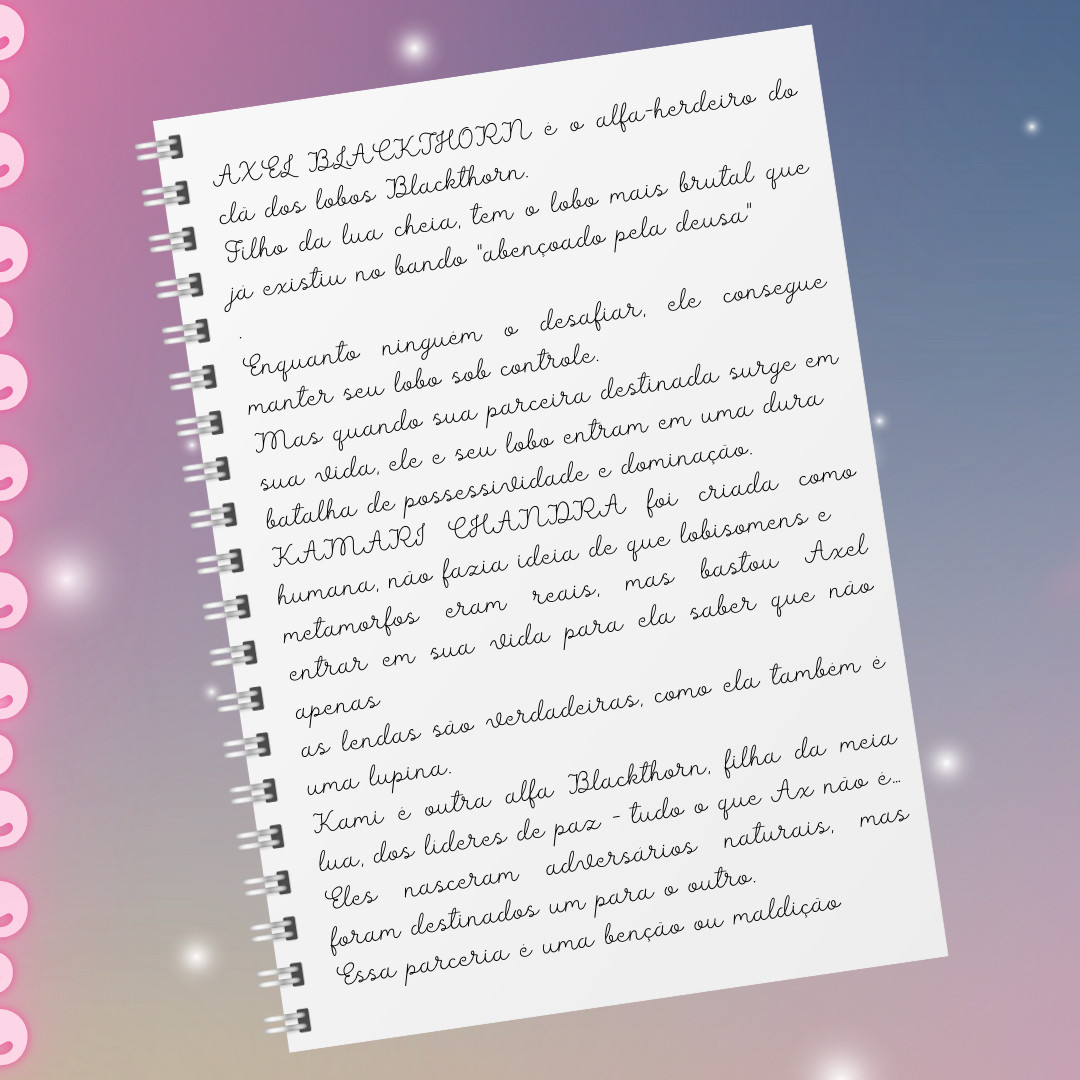 AXEL BLACKTHORN é o alfa-herdeiro do
clã dos lobos Blackthorn.
Filho da lua cheia, tem o lobo mais brutal que
já existiu no bando "abençoado pela deusa"
.
Enquanto ninguém o desafiar, ele consegue
manter seu lobo sob controle.
Mas quando sua parceira destinada surge em
sua vida, ele e seu lobo entram em uma dura
batalha de possessividade e dominação.
KAMARI CHANDRA foi criada como
humana, não fazia ideia de que lobisomens e
metamorfos eram reais, mas bastou Axel
entrar em sua vida para ela saber que não
apenas
as lendas são verdadeiras, como ela também é
uma lupina.
Kami é outra alfa Blackthorn, filha da meia
lua, dos líderes de paz - tudo o que Ax não é...
Eles nasceram adversários naturais, mas
foram destinados um para o outro.
Essa parceria é uma benção ou maldição